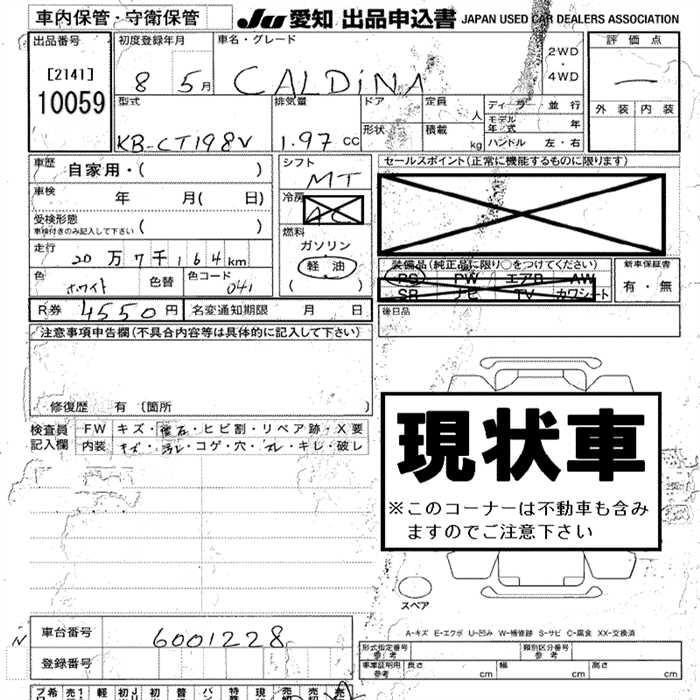 車内保管・守衛保管
JU 愛知 出品申込書 JAPAN USED CAR DEALERS ASSOCIATION
出品番号 初度登録年月 車名・グレード 評価点
[2141] 8 5月 CALDINA 2WD・4WD —
10059
型式 排気量 ドア 定員 人 ディーラー・並行 外装 内装
KB-CT198V 1.97 CC 形状 積載 kg モデル年式 年
ハンドル 左・右
車歴 自家用・( ) シフト MT セールスポイント(正常に機能するものに限ります)
車検 年 月( 日) 冷房 AC
受検形態 ( )
車検付きのみ記入して下さい
燃料 ガソリン 軽油 ( )
走行 20万7千164km
色 ホワイト 色替 色コード 041
装備品(純正品に限り○をつけてください) 新車保証書
PS PW エアB AW 有・無
SR ナビ TV カワシート
R券 4550円 名変通知期限 月 日 後日品
注意事項申告欄(不具合内容等は具体的に記入して下さい)
修復歴 有 〔箇所 )
現状車
※このコーナーは不動車も含み
ますのでご注意下さい
検査員 FW キズ・飛石・ヒビ割・リペア跡・X要
記入欄 内装 キズ・汚レ・コゲ・穴・スレ・キレ・破レ
スペア
A-キズ E-エクボ U-凹み W-補修跡 S-サビ C-腐食 XX-交換済
車台番号 6001228
登録番号
形式指定番号 参考 類別区分番号 参考
車庫証明用 参考 長さ cm 幅 cm 高さ cm